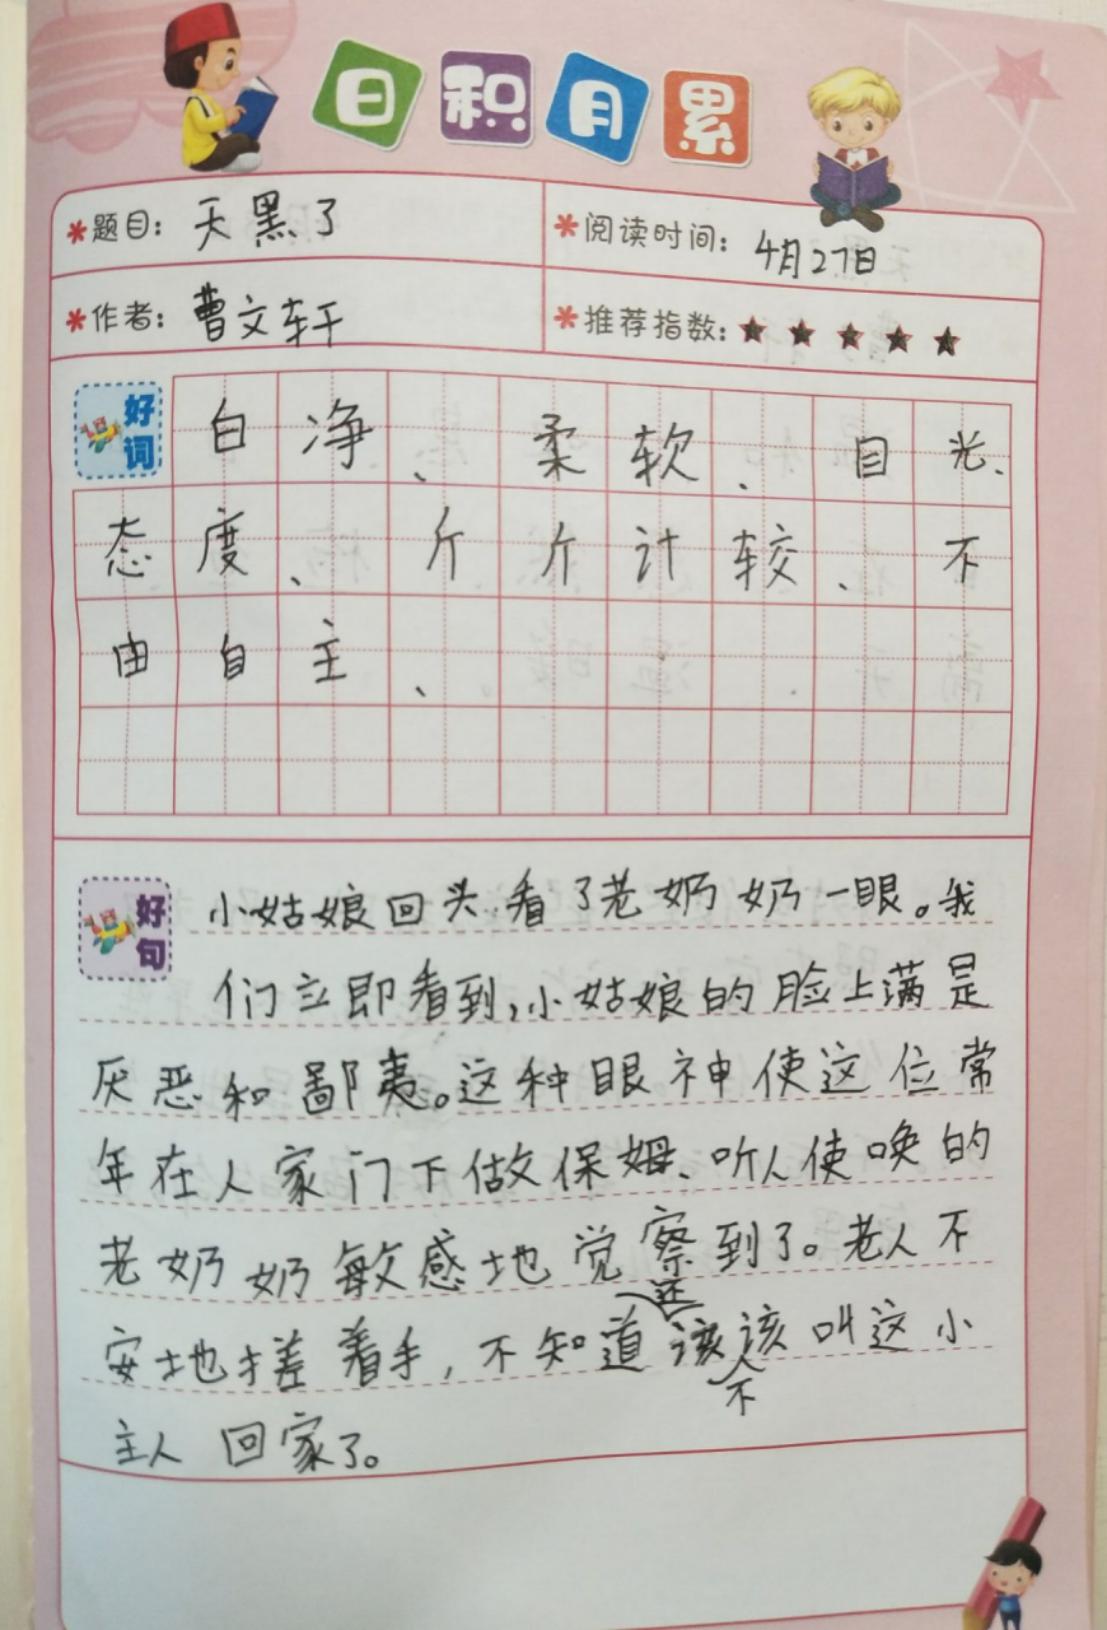 日积月累
*题目：天黑了
*阅读时间：4月27日
*作者：曹文轩
*推荐指数：★★★★★
好词
白净、柔软、目光、
态度、斤斤计较、不
由自主、
好句
小姑娘回头看了老奶奶一眼。我
们立即看到,小姑娘的脸上满是
厌恶和鄙夷。这种眼神使这位常
年在人家门下做保姆、听人使唤的
老奶奶敏感地觉察到了。老人不
安地搓着手,不知道还该不该叫这小
主人回家了。